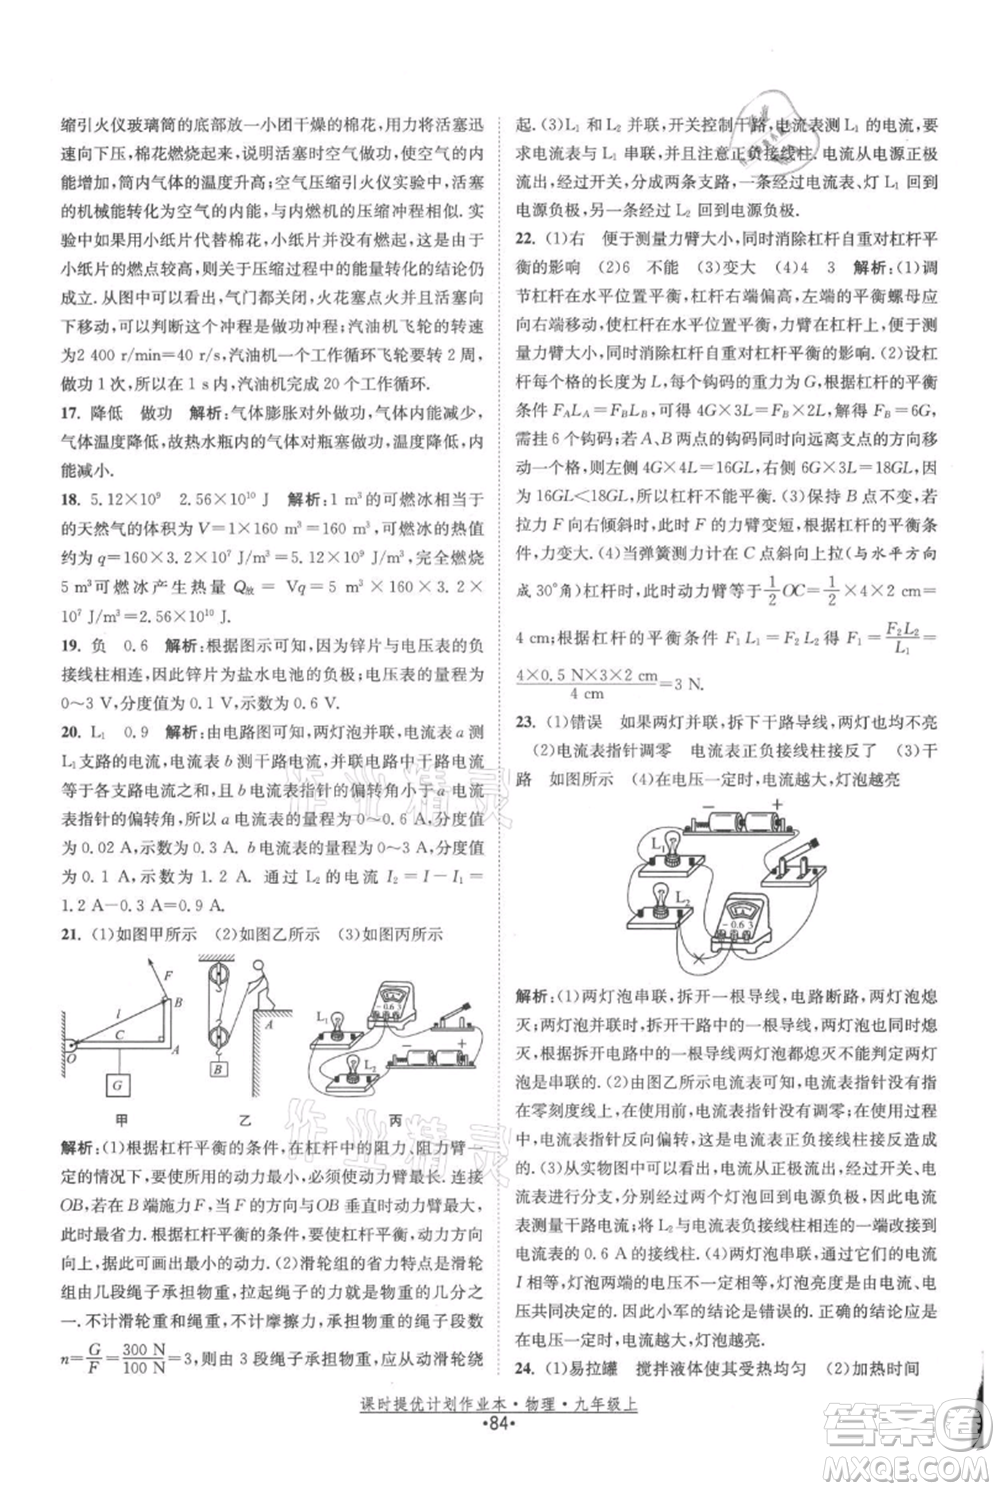 缩引火仪玻璃筒的底部放一小团干燥的棉花,用力将活塞迅
速向下压,棉花燃烧起来,说明活塞对空气做功,机械能转化
为内能,筒内气体的温度升高;空气压缩引火仪实验中,活塞
的机械能转化为空气的内能,与内燃机的压缩冲程相似.实
验中如果用小纸片代替棉花,小纸片并没有燃起,这是因为
小纸片的燃点较高,关于压缩气体时的能量转化的结论仍
成立.由图乙可知,气门都关闭,火花塞点火并且活塞向
下移动,可以判断这个冲程是做功冲程;汽油机飞轮的转速
为2 400 r/min=40 r/s,汽油机一个工作循环飞轮要转2周,
做功1次,所以在1 s内,汽油机完成20个工作循环.
17. 降低 做功 解析:气体膨胀对外做功,气体内能减少,
气体温度降低,故热水瓶内的气体对瓶塞做功,瓶内气体的
内能减小.
18. 5.12×10⁹ 2.56×10¹⁰ J 解析:1 m³的可燃冰相当于
的天然气的体积为V=1×160 m³=160 m³,可燃冰的热值
约为q=160×3.2×10⁷ J/m³=5.12×10⁹ J/m³,完全燃烧
5 m³可燃冰产生热量 Q放 = Vq = 5 × 160 × 3.2 ×
10⁷ J/m³=2.56×10¹⁰ J.
19. 负 0.6 解析:根据图示可知,因为锌片与电压表的负
接线柱相连,因此锌片为盐水电池的负极;电压表的量程为
0~3 V,分度值为0.1 V,示数为0.6 V.
20. L₁ 0.9 解析:由电路图可知,两灯泡并联,电流表a测
L₁支路的电流,电流表b测干路电流,并联电路中干路电流
等于各支路电流之和,电流表指针的偏转角小于a电流
表指针的偏转角,所以a电流表的量程为0~0.6 A,分度值
为0.02 A,示数为0.3 A;b电流表的量程为0~3 A,分度值
为0.1 A,示数为1.2 A.通过L₂的电流I₂=I-I₁=
1.2 A-0.3 A=0.9 A.
21. (1)如图甲所示 (2)如图乙所示 (3)如图丙所示
F
B
l
C
O
A
G
甲
A
B
乙
L₁
-0.6 3
- +
L₂
丙
解析:(1)根据杠杆平衡的条件,在杠杆中的阻力、阻力臂一
定的情况下,要使所用的动力最小,必须使动力臂最长.连接
OB,若在B端施力F,当F与OB垂直时动力臂最长,此时最
为省力.根据杠杆平衡的条件,要使杠杆平衡,动力方向
向上,据此可画出最小的动力.(2)滑轮组的省力特点是滑轮
组由几段绳子承担物重,拉起绳子的力就是物重的几分之
一.不计滑轮重和绳重,不计摩擦力,承担物重的绳子段数
n=G/F=300 N/100 N=3,则由3段绳子承担物重,应从动滑轮绕
起.(3)L₁和L₂并联,开关控制干路,电流表测L₁的电流,要
求电流表与L₁串联,并且注意正负接线柱.从电源正极
流出,经过开关,分成两条支路,一条经过电流表、灯L₁回到
电源负极,另一条经过灯L₂回到电源负极.
22. (1)右 便于测量力臂大小,同时消除杠杆自重对杠杆平
衡的影响 (2)6 不能 (3)变大 (4)4 3 解析:(1)调
节杠杆在水平位置平衡,杠杆右端偏高,左端的平衡螺母应
向右端移动,使杠杆在水平位置平衡,力臂在杠杆上,便于测
量力臂大小,同时消除杠杆自重对杠杆平衡的影响.(2)设杠
杆每个格的长度为L,每个钩码的重力为G,根据杠杆的平衡
条件FALA=FBLB,可得4G×3L=FB×2L,解得FB=6G,
需挂6个钩码;若A、B两点的钩码同时向远离支点的方向移
动一个格,则左侧4G×4L=16GL,右侧6G×3L=18GL,
因为16GL<18GL,所以杠杆不能平衡.(3)保持B点不变,若
拉力F向右倾斜时,此时F的力臂变短,根据杠杆的平衡条
件,力变大.(4)当弹簧测力计在C点斜向上拉(与水平方向
成30°角)杠杆时,此时动力臂等于1/2OC=1/2×4×2 cm=
4 cm;根据杠杆的平衡条件F₁L₁=F₂L₂,所以F₁=F₂L₂/L₁=
4×0.5 N×3×2 cm/4 cm=3 N.
23. (1)错误 如果两灯并联,拆下干路导线,两灯也均不亮
(2)电流表指针调零 电流表正负接线柱接反了 (3)干
路 如图所示 (4)在电压一定时,电流越大,灯泡越亮
- +
L₁
L₂
-0.6 3
解析:(1)两灯泡串联,拆开一根导线,电路断路,两灯泡熄
灭;两灯泡并联时,拆开干路中的一根导线,两灯泡也同时熄
灭.根据拆开电路中的一根导线,两灯泡都熄灭不能判断两灯
泡是串联的.(2)由图乙所示电流表可知,电流表指针没有指
在零刻度线处,在使用电流表前应先对指针进行调零;闭合开
关,电流表指针反向偏转,说明电流表正负接线柱接反造成
的.(3)从实物图中可以看出,电流从正极流出然后经过开关
后进行分支,分别经过两个灯泡回到电源负极,因此,电流
表测量干路电流;只要将L₂与电流表负接线柱相连的一端改接到
电流表的0.6 A的接线柱上.(4)两灯泡串联,通过它们的电流
I相等,灯泡两端的电压不一定相等,灯泡亮度是由电流与电
压共同决定的,因此小军的结论是错误的.正确的结论应为
在电压一定时,电流越大,灯泡越亮.
24. (1)易拉罐 搅拌液体使其受热均匀 (2)加热时间
课时提优计划作业本·物理·九年级上
·84·
作业精灵
作业精灵
答案圈
MXQE.COM